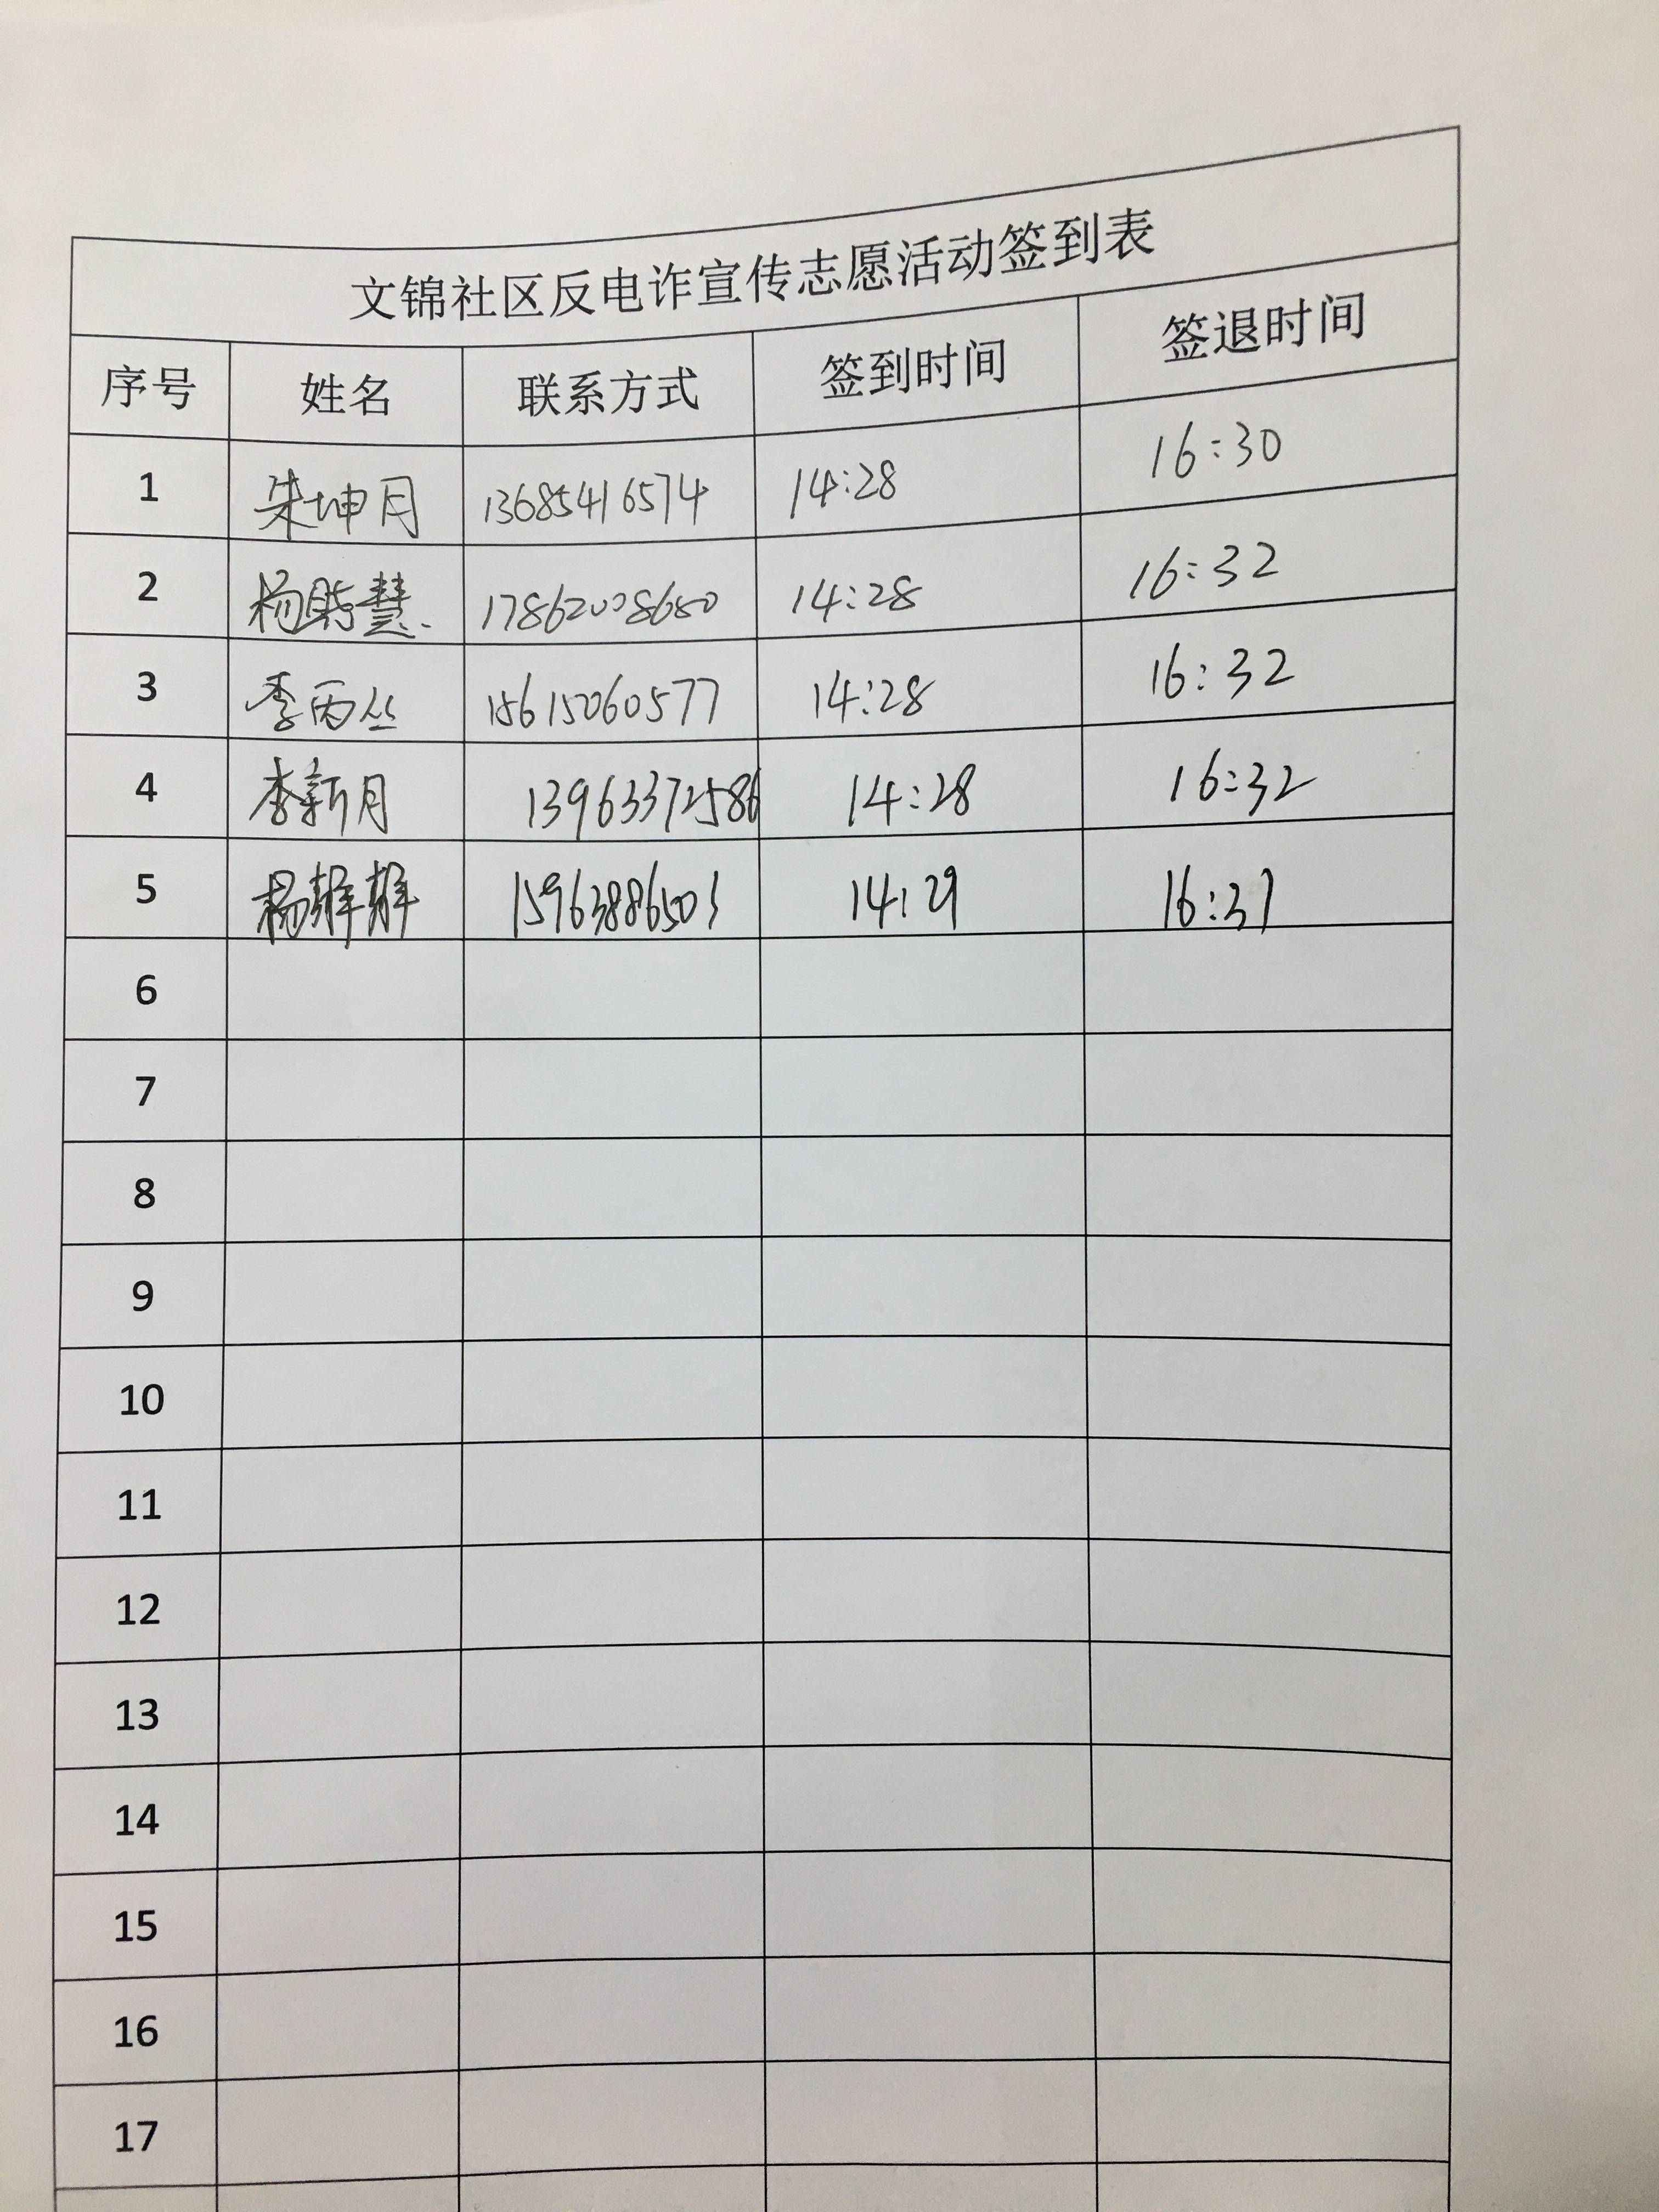 文锦社区反电诈宣传志愿活动签到表
序号 姓名 联系方式 签到时间 签退时间
1 朱坤月 13685416574 14:28 16:30
2 杨 慧 17862008680 14:28 16:32
3 李丙丛 15615060577 14:28 16:32
4 李新月 13963372586 14:28 16:32
5 杨 15963886503 14:29 16:31
6
7
8
9
10
11
12
13
14
15
16
17